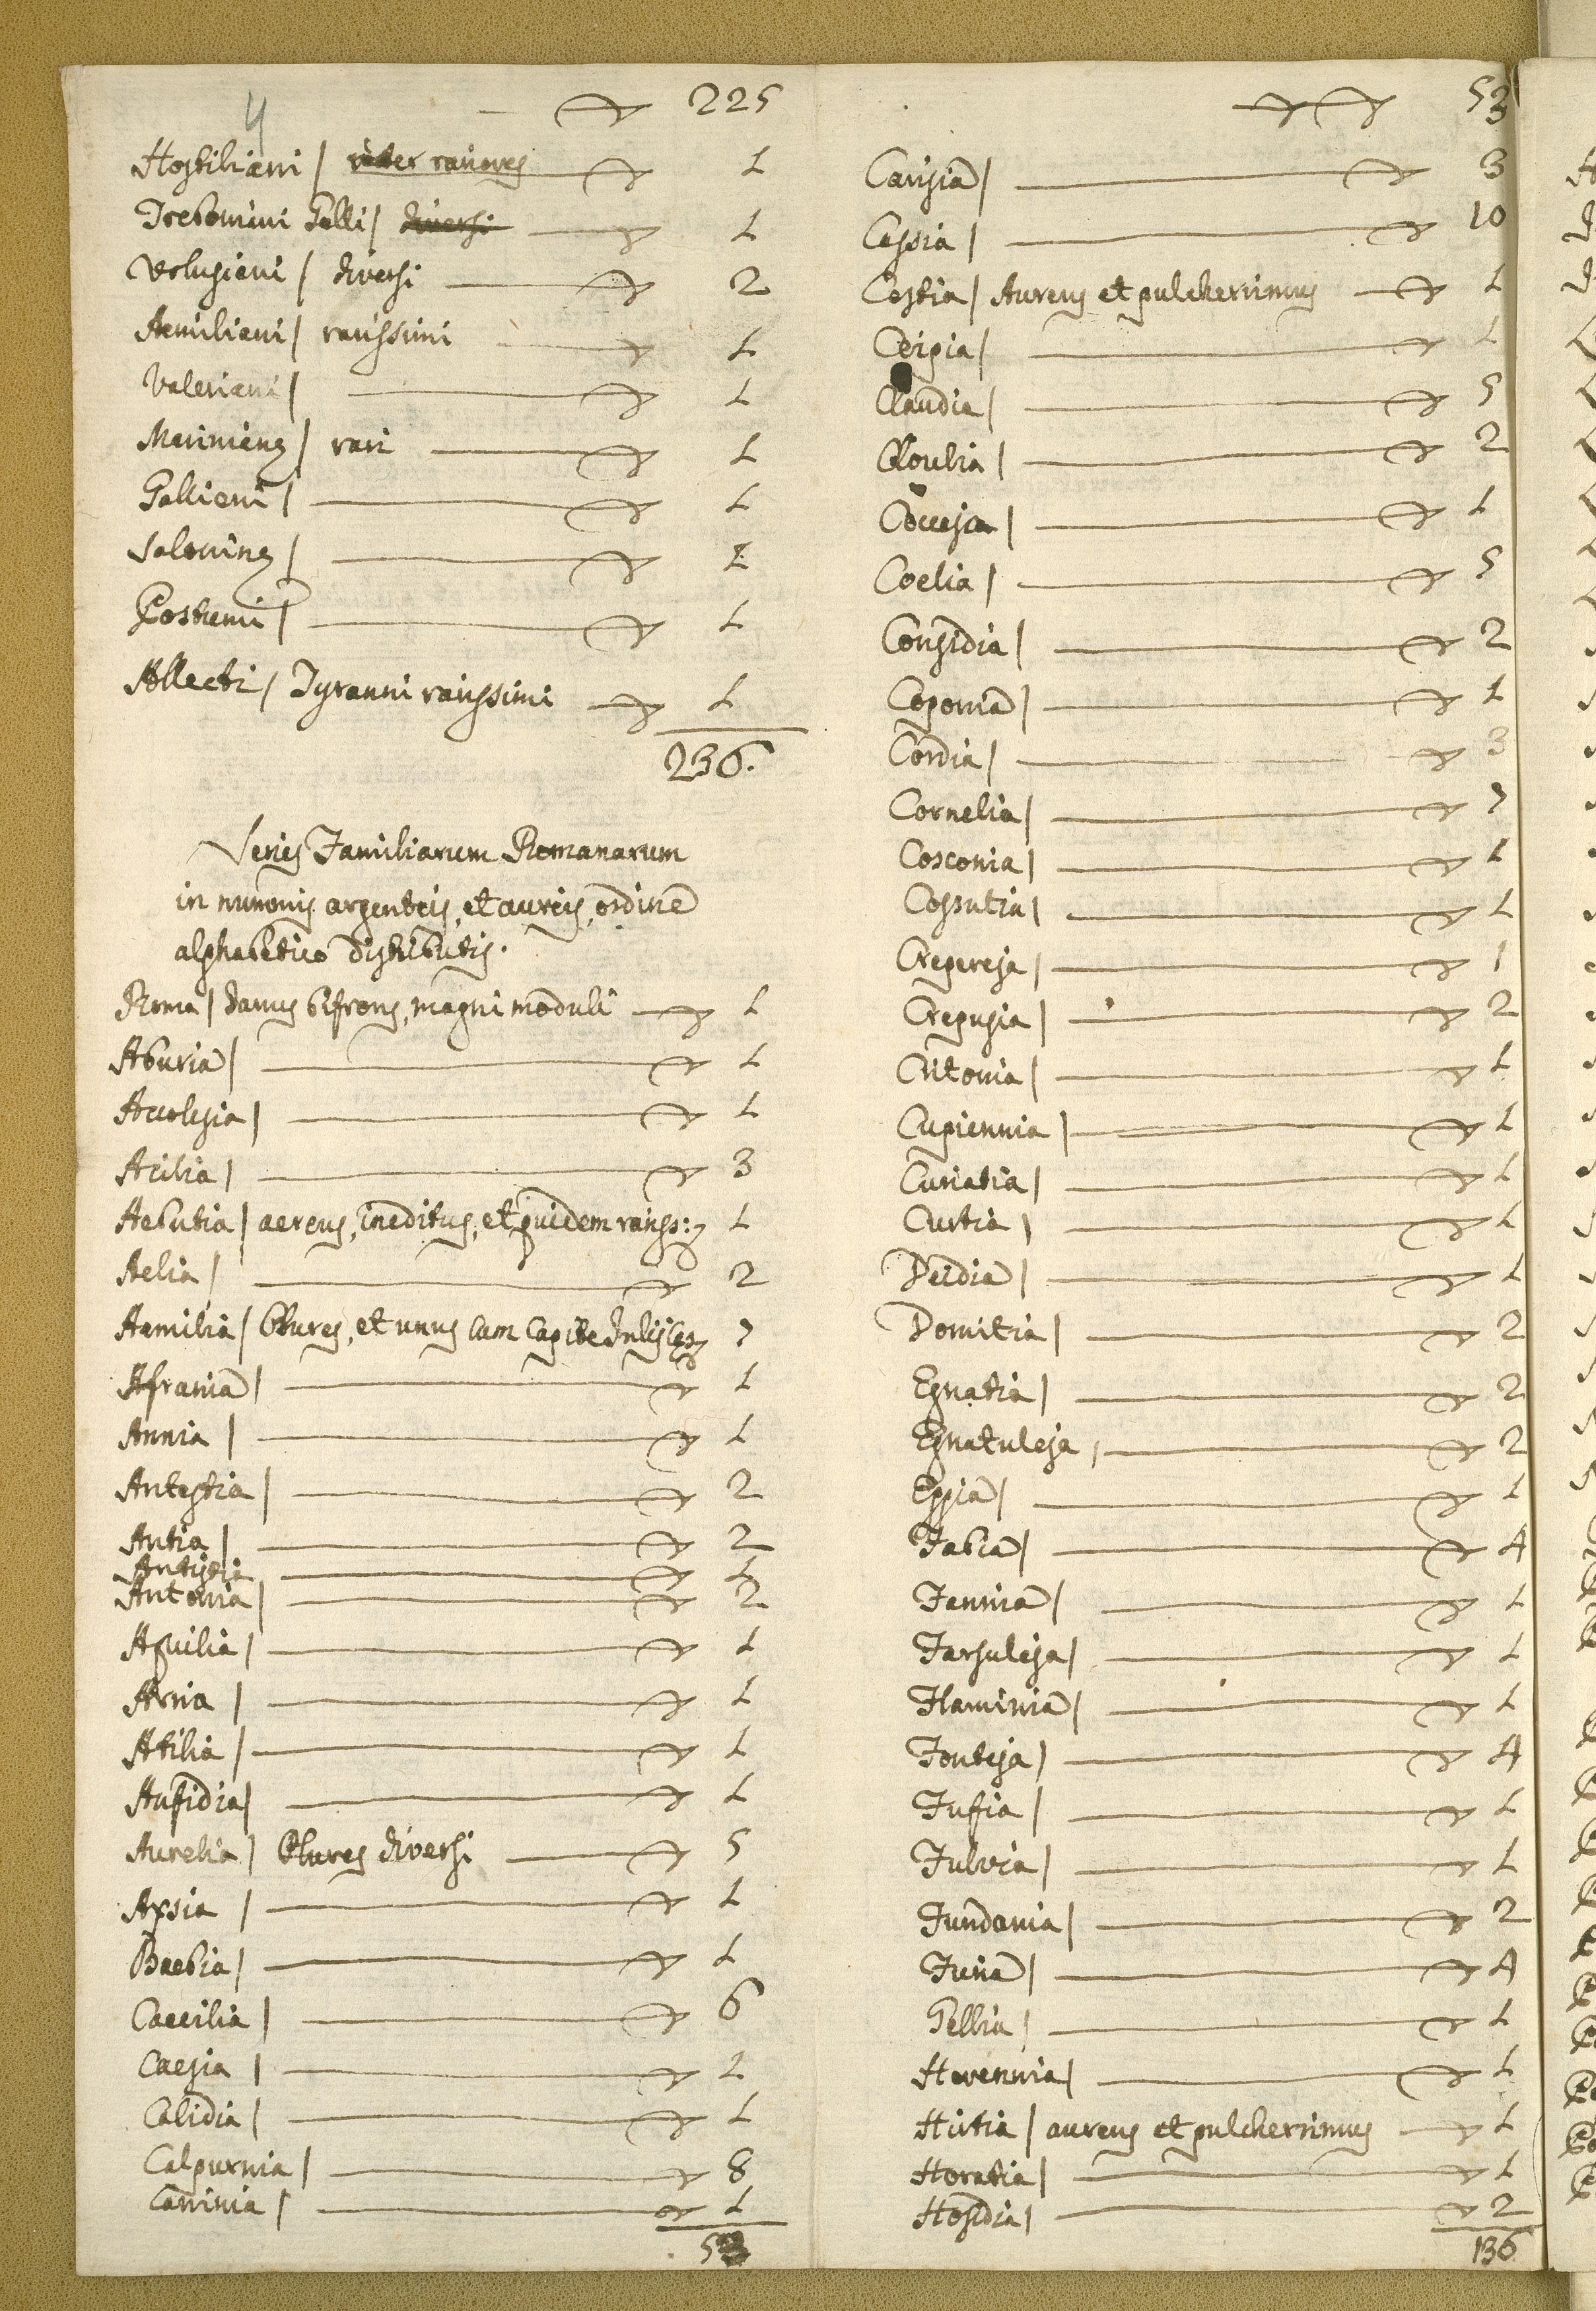 4
225
Hostiliani / inter rariores 1
Treboniani Galli / diversi 1
Volusiani / diversi 2
Aemiliani / rarissimi 1
Valeriani / 1
Marinianę / rari 1
Gallieni / 1
Saloninę / 1
Postumi / 1
Allecti / Tyranni rarissimi 1
236.
Series Familiarum Romanarum
in nummis argenteis, et aureis, ordine
alphabetico distributis.
Roma / Janus bifrons, magni moduli 1
Aburia / 1
Accoleja / 1
Acilia / 3
Aebutia / aereus, ineditus, et quidem rariss: 1
Aelia / 2
Aemilia / Plures, et unus cum capite Julij Cęs 7
Afrania / 1
Annia / 1
Antestia / 2
Antia / 2
Antistia 1
Antonia / 2
Aquilia / 1
Arria / 1
Atilia / 1
Aufidia / 1
Aurelia / Plures diversi 5
Axsia / 1
Baebia / 1
Caecilia / 6
Caesia / 1
Calidia / 1
Calpurnia / 8
Caninia / 1
53
53
Carisia / 3
Cassia / 10
Cestia / Aureus et pulcherrimus 1
Cipia / 1
Claudia / 5
Cloulia / 2
Cocceja / 1
Coelia / 5
Considia / 2
Coponia / 1
Cordia / 3
Cornelia / 7
Cosconia / 1
Cossutia / 1
Crepereja / 1
Crepusia / 2
Critonia / 1
Cupiennia / 1
Curiatia / 1
Curtia / 1
Deidia / 1
Domitia / 2
Egnatia / 2
Egnatuleja / 2
Eppia / 1
Fabia / 4
Fannia / 1
Farsuleja / 1
Flaminia / 1
Fonteja / 4
Fufia / 1
Fulvia / 1
Fundania / 2
Furia / 4
Gellia / 1
Herennia / 1
Hirtia / aureus et pulcherrimus 1
Horatia / 1
Hosidia / 2
136